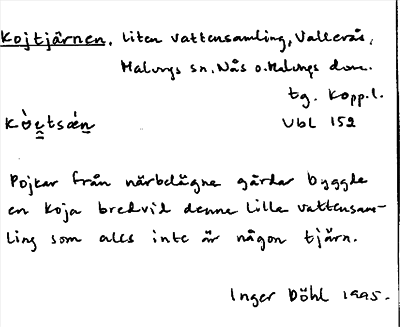 Kojtjärnen. Liten vattensamling, Vallerås,
Malungs sn, Nås o. Malungs dom.
tg. Kopp.l.
Ubl 152
Pojkar från närbelägna gårdar byggde
en koja bredvid denna lilla vattensam-
ling som alls inte är någon tjärn.
Inger Döhl 1995.